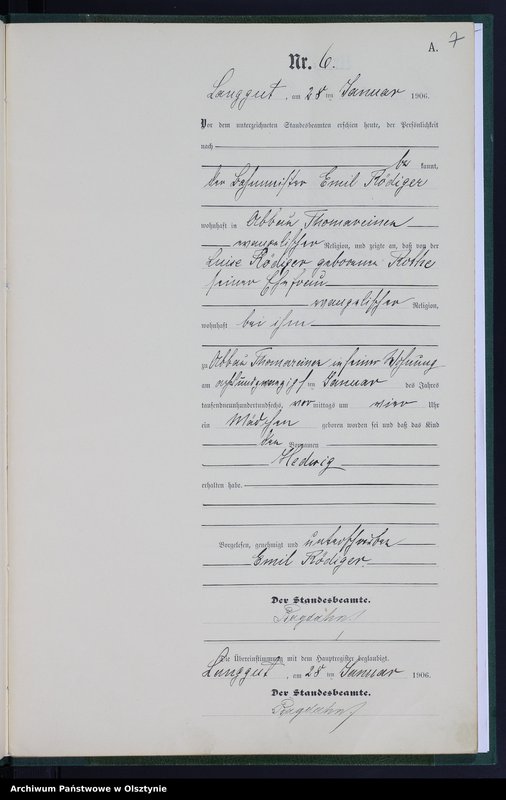 A.
7
Nr. 6.
Langgut, am 28 ten Januar 1906.
Vor dem unterzeichneten Standesbeamten erschien heute, der Persönlichkeit
nach
be kannt,
der Bahnmeister Emil Rödiger
wohnhaft in Abbau Thomareinen
evangelischer Religion, und zeigte an, daß von der
Luise Rödiger geborenen Rothe
seiner Ehefrau
evangelischer Religion,
wohnhaft bei ihm
zu Abbau Thomareinen in seiner Wohnung
am achtundzwanzigsten Januar des Jahres
tausendneunhundertundsechs, vor mittags um vier Uhr
ein Mädchen geboren worden sei und daß das Kind
den Vornamen
Hedwig
erhalten habe.
Vorgelesen, genehmigt und unterschrieben
Emil Rödiger
Der Standesbeamte.
Die Übereinstimmung mit dem Hauptregister beglaubigt.
Langgut, am 28 ten Januar 1906.
Der Standesbeamte.
Archiwum Państwowe w Olsztynie